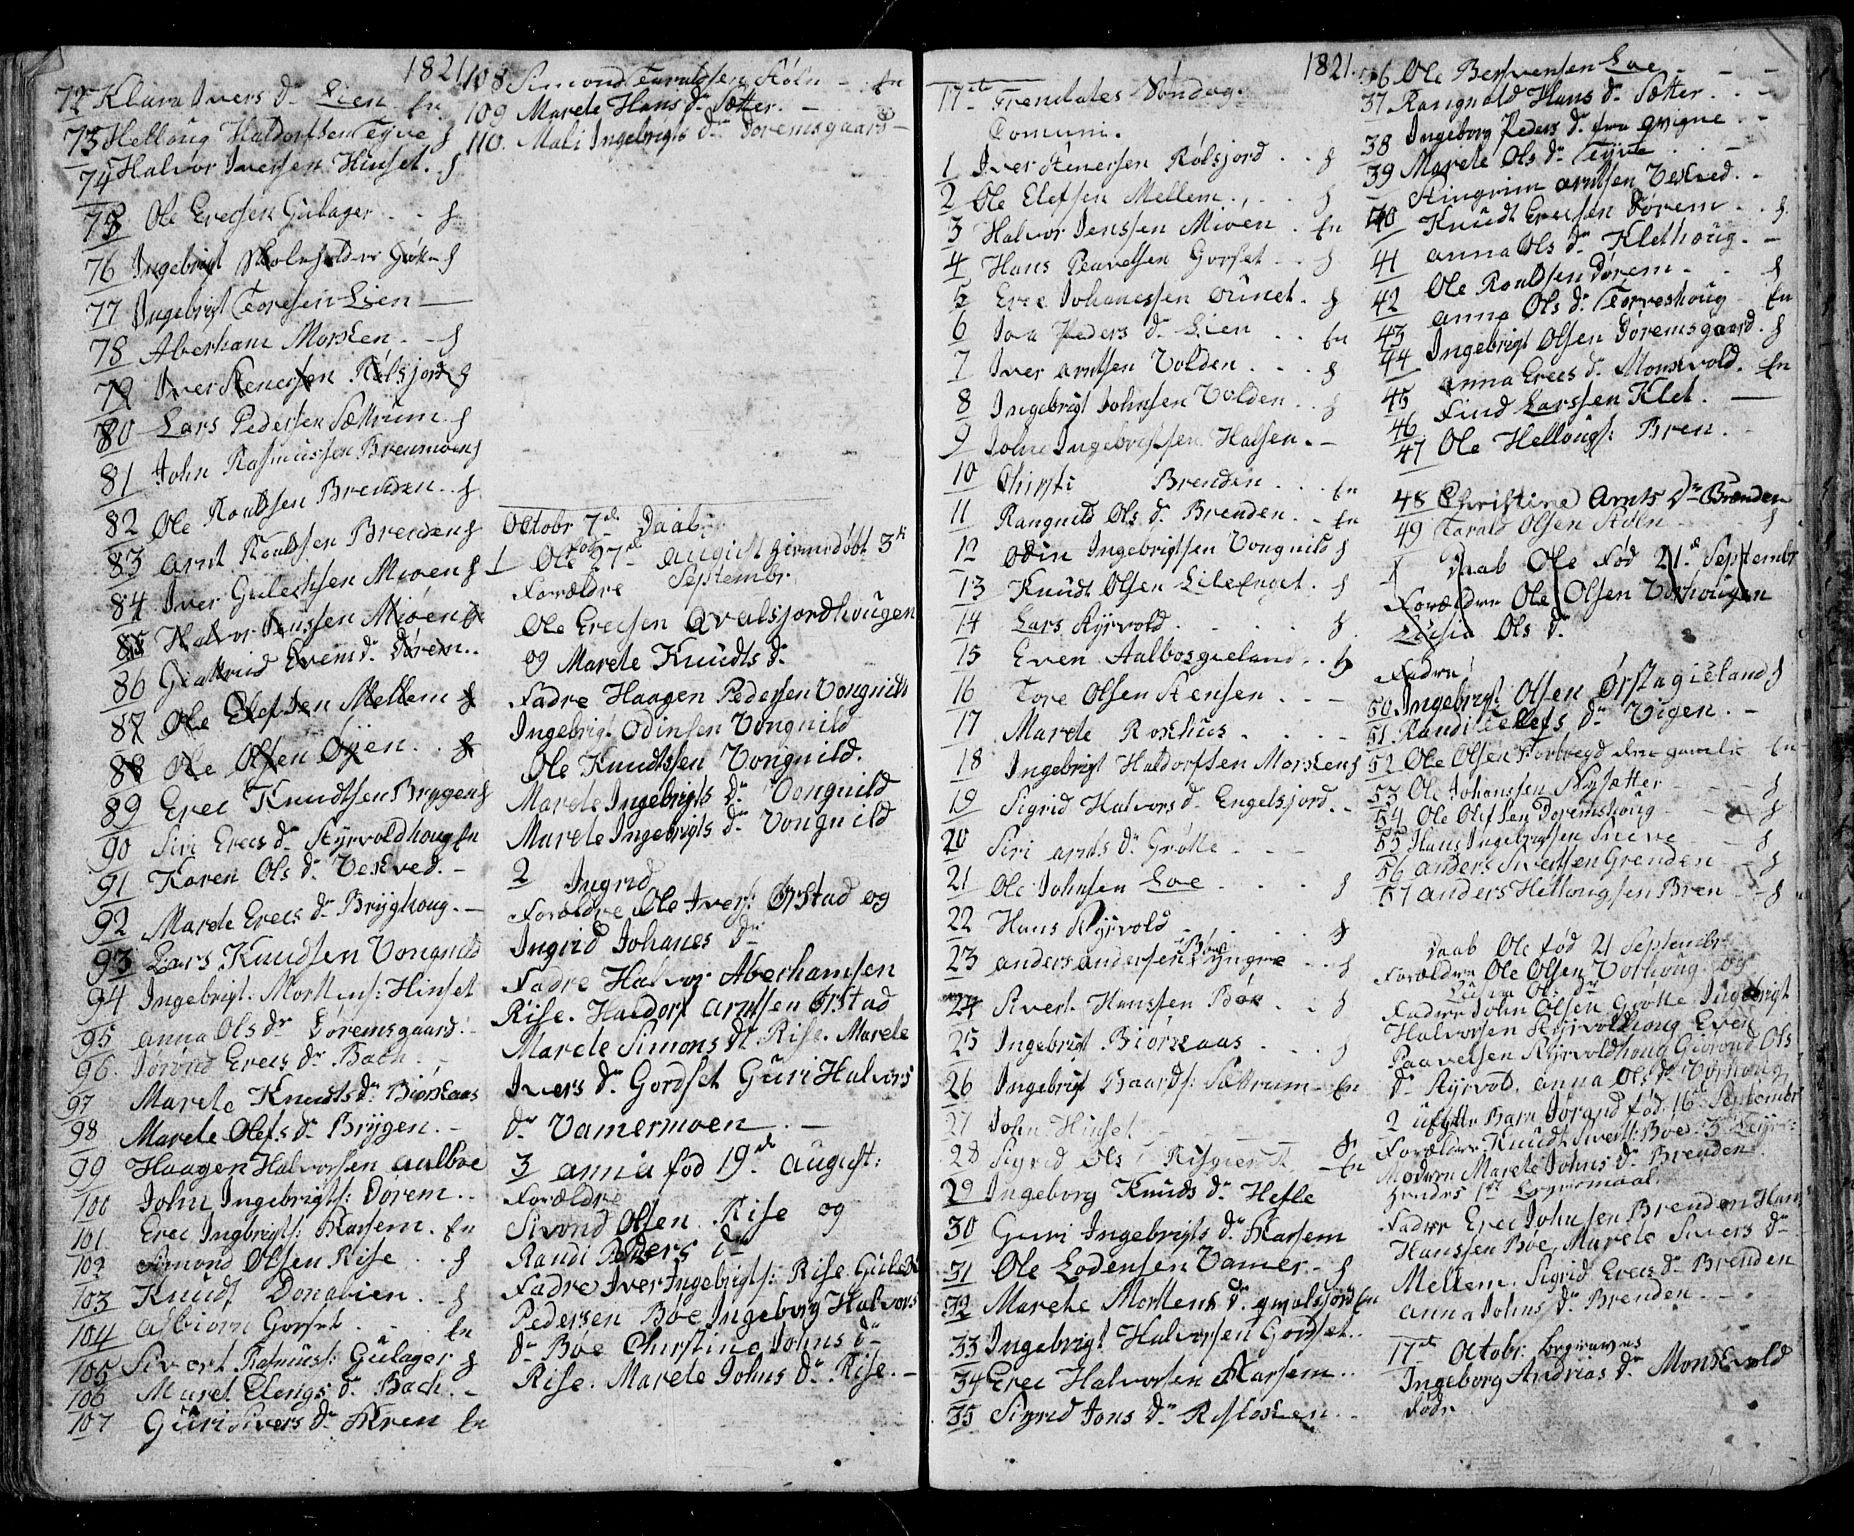 1821
72 Klara Ivers dr Lien En
73 Helloug Haldorssen Tyve
74 Halvor Iversen Hinset
75 Ole Erecsen Gulager
76 Ingebrigt Skoleholder
77 Ingebrigt Toresen Lien
78 Aberham Morsken
79 Iver Stenersen Rølsjord
80 Lars Pedersen Sættrum
81 John Rasmussen Brenmoen
82 Ole Roaldsen Brenden
83 Arnt Roaldsen Brenden
84 Iver Gulecksen Mioen
85 Halvor Jenssen Mioen
86 Evens dr Dørem
87 Ole Elefsen Mellem
88 Ole Olsen Øyen
89 Erec Knudtsen Bryggen
90 Siri Erecs dr Styrvoldhoug En
91 Karen Ols dr Vekved
92 Marete Erecs dr Bryghoug
93 Lars Knudsen Vongnild
94 Ingebrigt Mortens: Hinset
95 anna Ols dr Doremsgaard
96 Jørond Erecs dr Bach
97 Marete Knudts dr Biørkaas
98 Marete Olefs dr Bryggen
99 Haagen Halvorsen aalboe
100 John Ingebrigts: Dørem
101 Erec Ingbrigts: Karsem En
102 Simond Olsen Rise
103 Knudt Donabien
104 Asbiørn Gorset En
105 Sivert Rasmus: Gulager
106 Maret Elengs dr Bach
107 Guri Sivers dr Kren En
108 Simond Taraldsen Støln En
109 Marete Hans dr Sætter
110 Mali Ingebrigts dr Doremsgaard
Octobr 7de Daab
1 Ole 27de august hiemdøbt 3de
Forældre Septembr
Ole Erecsen Qvalsjordhougen
og Marete Knudts dr
Fadre Haagen Pedersen Vongnild
Ingebrigt Odinsen Vongnild
Ole Knudtssen Vongnild
Marete Ingebrigts dr Vongnild
Marete Ingebrigts dr Vongnild
2 Ingrid
Forældre Ole Ivers: Ørstad og
Ingrid Johanes dr
Fadre Halvor Aberhamsen
Rise. Haldorf Arntsen Ørstad
Marete Simons dr Rise. Marete
Ivers dr Gordset Guri Halvors
dr Vamermoen
3 annia fød 19de august:
Forældre
Sivond Olsen Rise og
Randi Peders dr
Fadre Iver Ingebrigts: Rise Gulech
Pedersen Bøe Ingeborg Halvors
dr Bøe Christine Johns dr
Rise. Marete Johns dr Rise.
1821
17te Trenitates Søndag
Comuni.
1 Iver Stenersen Rølsjord
2 Ole Elefsen Mellem
3 Halvor Jenssen Mioen En
4 Hans Paavelsen Gorset
5 Erec Johanssen ounet
6 Peders dr Lien En
7 Iver arntsen Volden
8 Ingebrigt Johnsen Volden
9 John Ingebrigtsen Halsen
10 Chirsti Brenden En
11 Rangnild Ols dr Brenden En
12 Odin Ingebrigtsen Vongnild
13 Knudt Olsen Lilefnget
14 Lars Kyrvold
15 Even Aalbosgieland
16 Tore Olsen Stensen
17 Marete Roxhus
18 Ingebrigt Haldorssen Morsken
19 Sigrid Halvors dr Engelsjord
20 Siri arnts dr Grøtte
21 Ole Johnsen Loe
22 Hans Kyrvold
23 anders andersen
24 Sivert Hanssen Bøe
25 Ingebrigt Biørkaas
26 Ingebrigt Baards: Sættrum En
27 John Hinset
28 Sigrid Ols En
29 Ingeborg Knuds dr Hefle
30 Guri Ingebrigts dr Karsem
31 Ole Lodensen Vamer
32 Marete Mortens dr qvalsjord En
33 Ingebrigt Halvorsen Gordset
34 Erec Halvorsen Karsem
35 Sigrid Jons dr
36 Ole Bersvensen Loe
37 Rangnold Hans dr Sætter
38 Ingeborg Peders dr fra qvigne
39 Marete Ols dr Tyve
Stingrim arntsen Vekved
40 Knudt Erecsen Dorem
41 anna Ols dr Klethoug
42 Ole Roaldsen Dørem
43 anna Ols dr Torveshoug En
44 Ingebrigt Olsen Doremsgaard
45 anna Erecs dr Monsvold En
46 Find Larssen Klet
47 Ole Hellougs: Bren
48 Christine Arnts Dr Brenden
49 Tarald Olsen Støln
1 Daab Ole Fød 21de Septembr
Forældre Ole Olsen Vorhougen
Ols dr
Fadre
50 Ingebrigt Olsen Ørstagieland
51 Randi Ellefs dr Vigen
52 Ole Olsen Forbregd den gamle En
53 Ole Johanssen Nysætter
54 Ole Olefsen Doremshoug
55 Hans Ingebrigtsen
56 anders Grenden
57 anders Hellougsen Bren
Daab Ole fød 21 Septembr
Forældre Ole Olsen Vorhoug og
Ols dr
Fadre John Olsen Grøtte Ingebrigt
Halvorsen Kyrvoldhoug Even
Paavelsen Kyrvoldhoug Giørond Ols
dr Kyrvol. anna Ols dr Vorhoug
2 uægte Barn Jørand fød 16de Septembr
Forældre Knudt Siverts: Bøe
Modren Marete Johns dr Brenden
hendes 1ste Leyermaal
Fadre Erec Johnsen Brenden Hans
Hanssen Bøe Marete Sivers dr
Mellem. Sigrid Erecs dr Brenden
Anna Johns dr Brenden
17de Octobr: begraves
Ingeborg Andrias dr Monsvold
Fødr